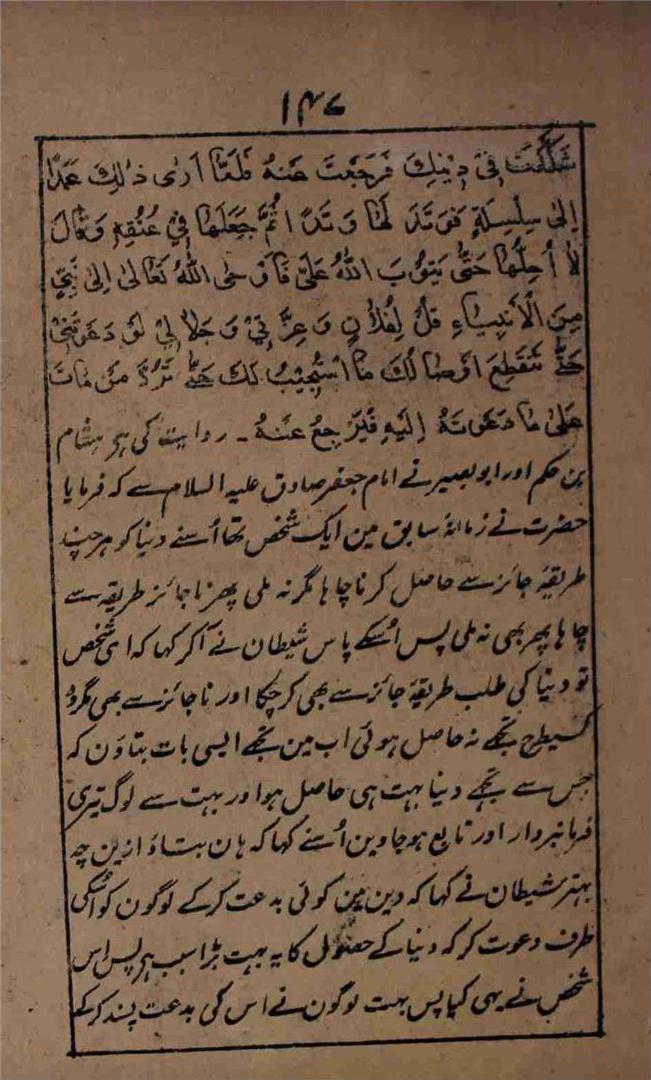 ۱۴۷
شَكَكْتَ فِيْ دِيْنِكَ فَرَجَعْتَ عَنْهُ فَلَمَّا اَرٰى ذٰلِكَ عَمَدَ
اِلٰى سِلْسِلَةٍ فَوَتَدَ لَهَا وَتَدًا ثُمَّ جَعَلَهَا فِيْ عُنُقِهٖ وَقَالَ
لَا اُحِلُّهَا حَتّٰى يَتُوْبَ اللّٰهُ عَلَيَّ فَاَوْحَى اللّٰهُ تَعَالٰى اِلٰى نَبِيٍّ
مِنَ الْاَنْبِيَاءِ قُلْ لِفُلَانٍ وَعِزَّتِيْ وَجَلَالِيْ لَوْ دَعَوْتَنِيْ
حَتّٰى تَنْقَطِعَ اَوْصَالُكَ مَا اسْتُجِيْبُ لَكَ حَتّٰى تَرُدَّ مَنْ مَاتَ
عَلٰى مَا دَعَوْتَهُ اِلَيْهِ فَيَرْجِعُ عَنْهُ ۔ روایت کی ہر ہشام
بن حکم اور ابو بصیر نے امام جعفر صادق علیہ السلام سے کہ فرمایا
حضرت نے زمانۂ سابق مین ایک شخص تھا اُسنے دنیا کو ہر چند
طریقۂ جائز سے حاصل کرنا چاہا مگر نہ ملی پھر ناجائز طریقہ سے
چاہا پھر بھی نہ ملی پس اُسکے پاس شیطان نے آکر کہا کہ ای شخص
تو دنیا کی طلب طریقۂ جائز سے بھی کر چکا اور ناجائز سے بھی مگر وُہ
کسیطرح تجھے نہ حاصل ہوئی اب مین تجھے ایسی بات بتاؤن کہ
جس سے تجھے دنیا بہت ہی حاصل ہو اور بہت سے لوگ تیری
فرمانبردار اور تابع ہوجاوین اُسنے کہا کہ ہان بتاؤ ازین چہ
بہتر شیطان نے کہا کہ دین مین کوئی بدعت کرکے لوگون کو اُسکی
طرف دعوت کر کہ دنیا کے حصول کا یہ بہت بڑا سبب ہر پس اس
شخص نے یہی کیا پس بہت لوگون نے اس کی بدعت پسند کرکے